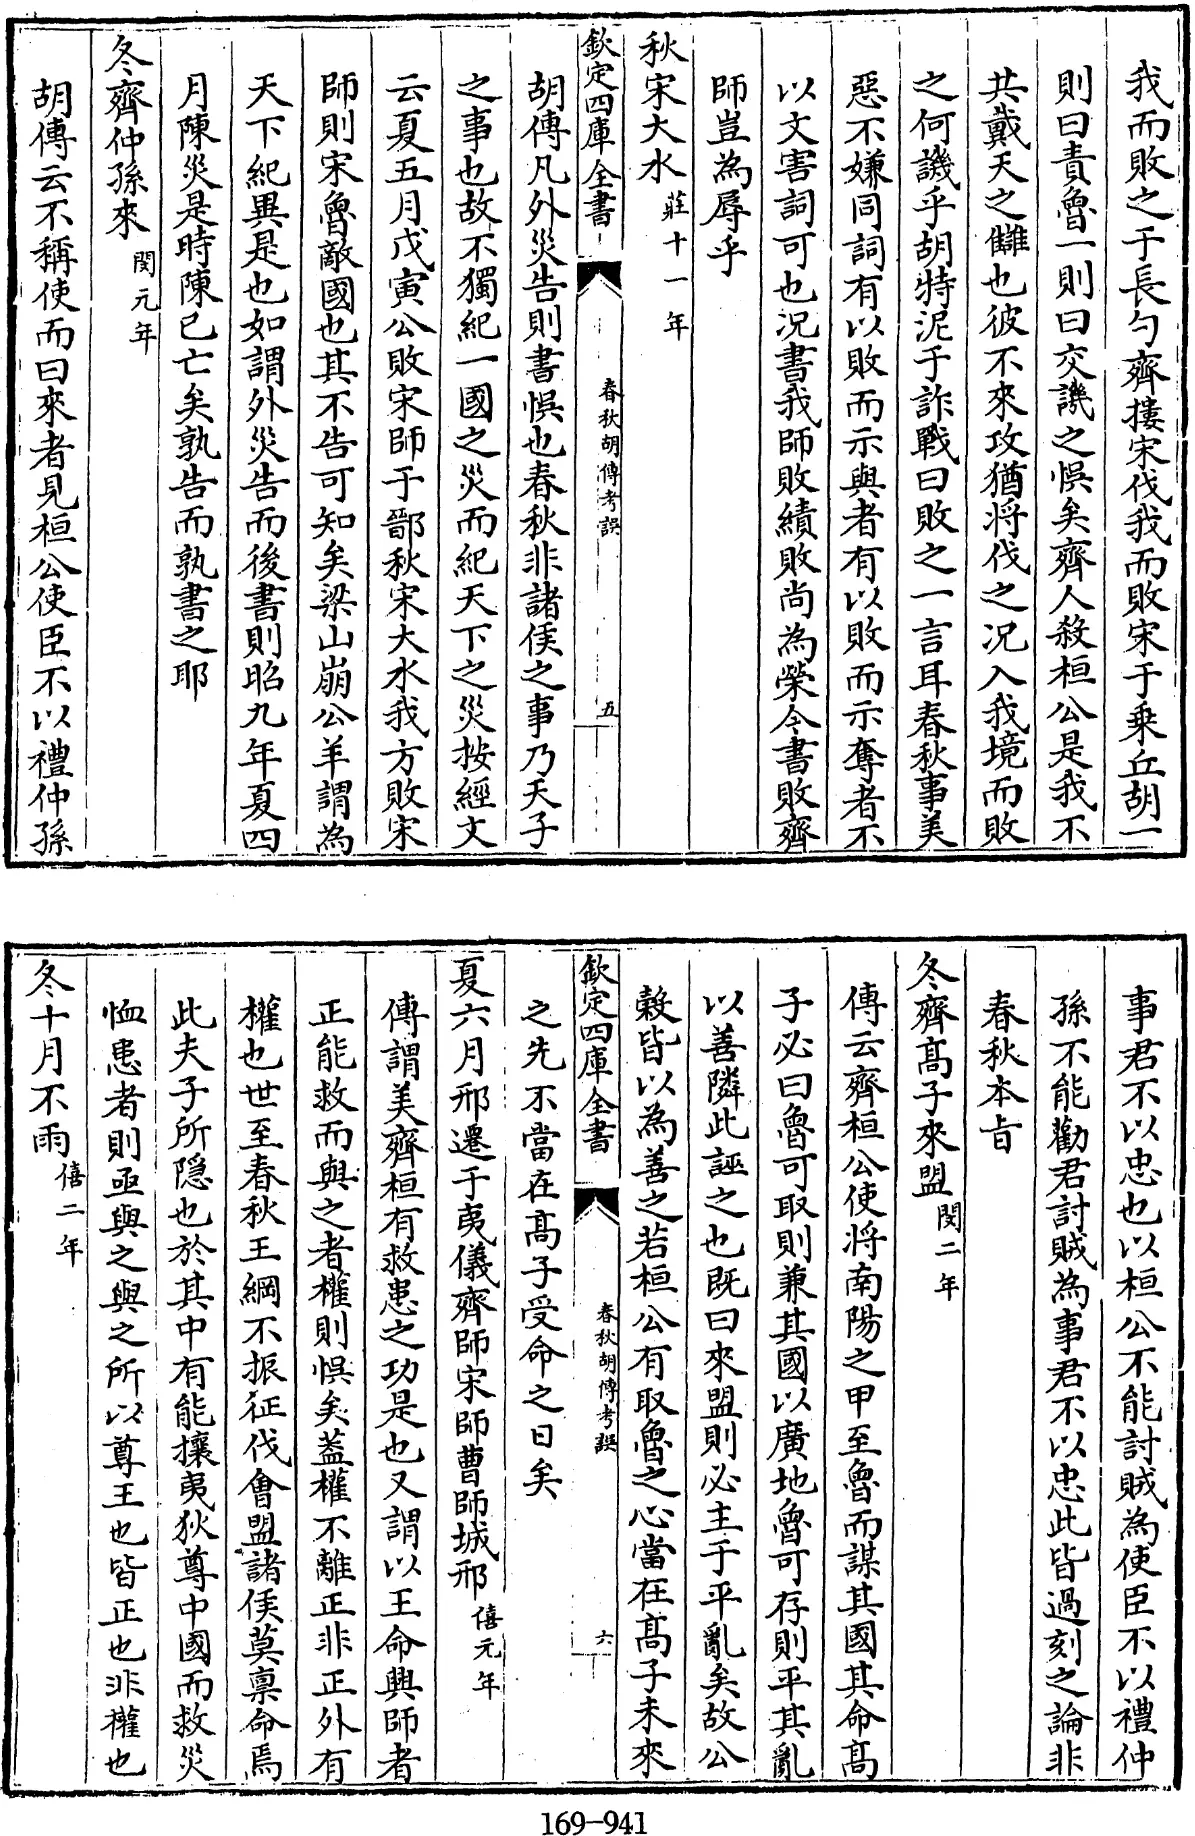 我而敗之于長勺齊摟宋伐我而敗宋于乗丘胡一
則曰責魯一則曰交譏之悞矣齊人殺桓公是我不
共戴天之讎也彼不來攻猶將伐之况入我境而敗
之何譏乎胡特泥于詐戰曰敗之一言耳春秋事美
惡不嫌同詞有以敗而示與者有以敗而示奪者不
以文害詞可也况書我師敗績敗尚為榮今書敗齊
師豈為辱乎
秋宋大水莊十一年
欽定四庫全書
春秋胡傳考誤
五
胡傳凡外災告則書悞也春秋非諸侯之事乃天子
之事也故不獨紀一國之災而紀天下之災按經文
云夏五月戊寅公敗宋師于鄑秋宋大水我方敗宋
師則宋魯敵國也其不告可知矣梁山崩公羊謂為
天下紀異是也如謂外災告而後書則昭九年夏四
月陳災是時陳已亡矣孰告而孰書之耶
冬齊仲孫來閔元年
胡傳云不稱使而曰來者見桓公使臣不以禮仲孫
事君不以忠也以桓公不能討賊為使臣不以禮仲
孫不能勸君討賊為事君不以忠此皆過刻之論非
春秋本旨
冬齊髙子來盟閔二年
傳云齊桓公使將南陽之甲至魯而謀其國其命髙
子必曰魯可取則兼其國以廣地魯可存則平其亂
以善隣此誣之也既曰來盟則必主于平亂矣故公
榖皆以為善之若桓公有取魯之心當在髙子未來
欽定四庫全書
春秋胡傳考誤
六
之先不當在髙子受命之日矣
夏六月邢遷于夷儀齊師宋師曹師城邢僖元年
傳謂美齊桓有救患之功是也又謂以王命興師者
正能救而與之者權則悞矣葢權不離正非正外有
權也世至春秋王綱不振征伐會盟諸侯莫禀命焉
此夫子所隱也於其中有能攘夷狄尊中國而救災
恤患者則亟與之與之所以尊王也皆正也非權也
冬十月不雨僖二年
169-941